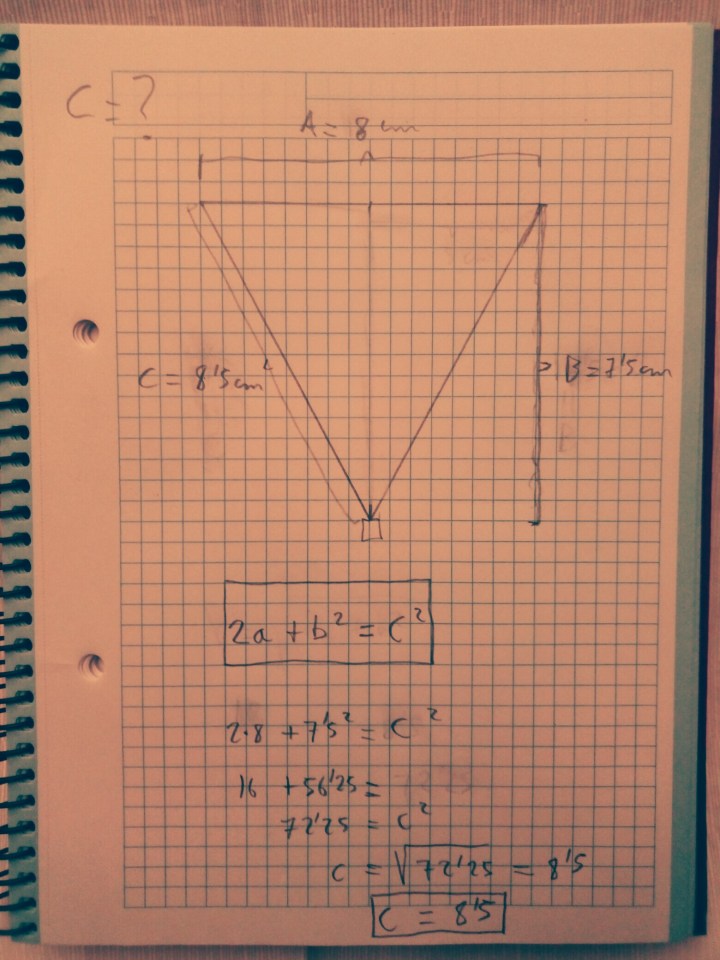 C = ?
A = 8 cm
C = 8'5 cm
B = 7'5 cm
2a + b² = c²
2·8 + 7'5² = c²
16 + 56'25 =
72'25 = c²
c = √72'25 = 8'5
C = 8'5